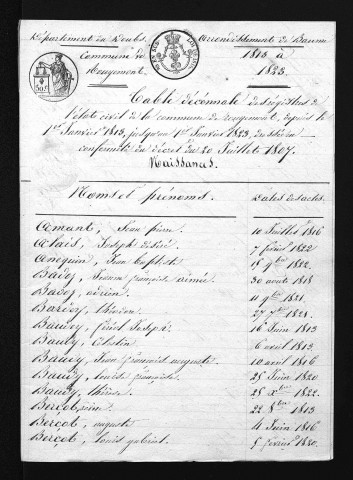 Département du Doubs. Arrondissement de Baume
Commune de Rougemont. 1813 à 1823.
Table décennale des régistres de
l'état civil de la commune de rougemont, depuis le
1er Janvier 1813, jusqu'au 1er Janvier 1823, dressée en
conformité du décret du 20 Juillet 1807.
Naissances.
Noms et prénoms. Dates des actes.
Amant, Jean pierre. 10 Juillet 1816
Joseph désiré. 7 février 1822
Jean Baptiste 18 9bre 1812.
françoise aimée. 30 août 1818
adrien. 11 9bre 1821.
27 7bre 1821.
Joseph. 16 Juin 1813
Baudy, Célestin 6 avril 1813
Baudy, Jean françois auguste 10 avril 1816
Baudy, louise françoise. 25 Juin 1820
Baudy, thérèse. 25 xbre 1822.
22 8bre 1813
Berçot, auguste 4 Juin 1816
Berçot, louis gabriel. 5 février 1820.